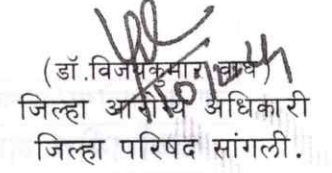 (डॉ.विजयकुमार वाघ)
जिल्हा आरोग्य अधिकारी
जिल्हा परिषद सांगली.